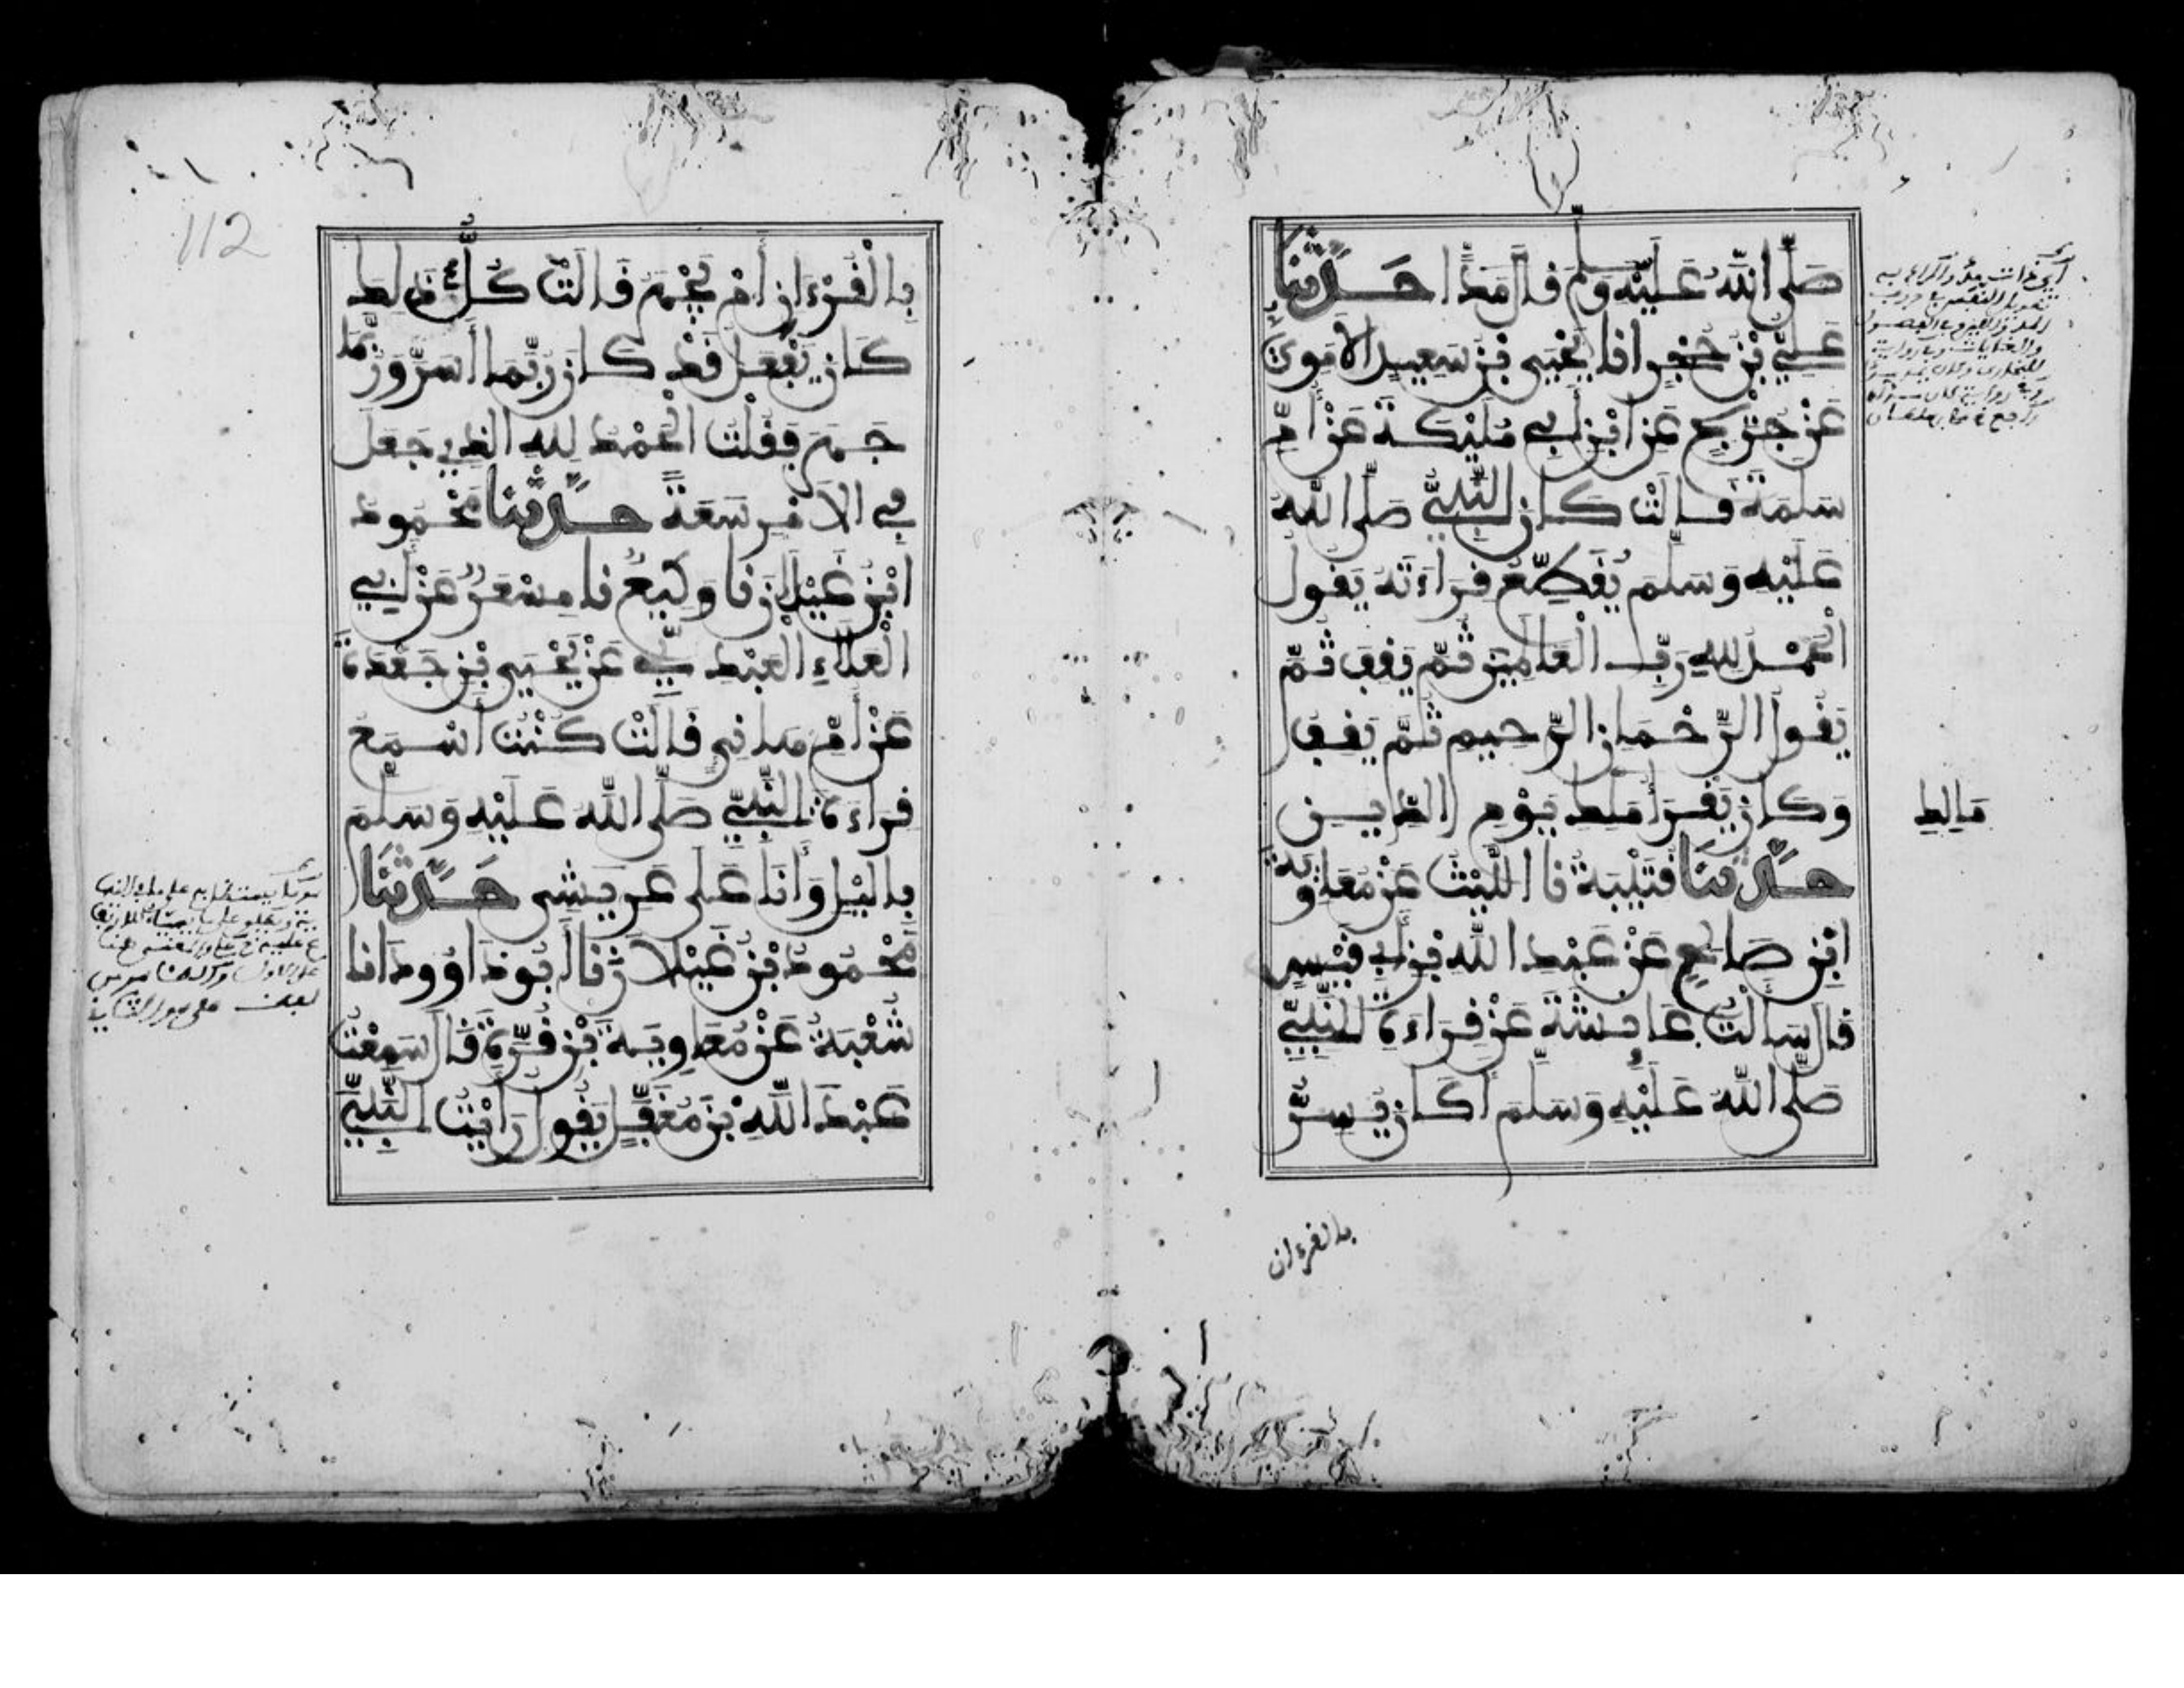 صَلَّى اللهُ عَلَيْهِ وَسَلَّمَ قَالَ مَدًّا حَدَّثَنَا
عَلِيُّ بْنُ حُجْرٍ انا يَحْيَى بْنُ سَعِيدٍ الأُمَوِيُّ
عَنْ جُرَيْجٍ عَنِ ابْنِ أَبِي مُلَيْكَةَ عَنْ أُمِّ
سَلَمَةَ قَالَتْ كَانَ النَّبِيُّ صَلَّى اللهُ
عَلَيْهِ وَسَلَّمَ يُقَطِّعُ قِرَاءَتَهُ يَقُولُ
الْحَمْدُ لِلهِ رَبِّ الْعَالَمِينَ ثُمَّ يَقِفُ ثُمَّ
يَقُولُ الرَّحْمَانِ الرَّحِيمِ ثُمَّ يَقِفُ
وَكَانَ يَقْرَأُ مَلِكِ يَوْمِ الدِّينِ
مَالِكِ
حَدَّثَنَا قُتَيْبَةُ نا اللَّيْثُ عَنْ مُعَاوِيَةَ
ابْنِ صَالِحٍ عَنْ عَبْدِ اللهِ بْنِ أَبِي قَيْسٍ
قَالَ سَأَلْتُ عَائِشَةَ عَنْ قِرَاءَةِ النَّبِيِّ
صَلَّى اللهُ عَلَيْهِ وَسَلَّمَ أَكَانَ يُسِرُّ
بالقرءان
112
بِالْقُرْءَانِ أَمْ يَجْهَرُ قَالَتْ كُلُّ ذَلِكَ
كَانَ يَفْعَلُ قَدْ كَانَ رُبَّمَا أَسَرَّ وَرُبَّمَا
جَهَرَ فَقُلْتُ الْحَمْدُ لِلهِ الذِي جَعَلَ
فِي الأَمْرِ سَعَةً حَدَّثَنَا مَحْمُودُ
ابْنُ غَيْلَانَ نا وَكِيعٌ نا مِسْعَرٌ عَنْ أَبِي
الْعَلَاءِ الْعَبْدِيِّ عَنْ يَحْيَى بْنِ جَعْدَةَ
عَنْ أُمِّ هَانِيٍ قَالَتْ كُنْتُ أَسْمَعُ
قِرَاءَةَ النَّبِيِّ صَلَّى اللهُ عَلَيْهِ وَسَلَّمَ
بِاللَّيْلِ وَأَنَا عَلَى عَرِيشِي حَدَّثَنَا
مَحْمُودُ بْنُ غَيْلَانَ نا أَبُو دَاوُودَ انا
شُعْبَةُ عَنْ مُعَاوِيَةَ بْنِ قُرَّةَ قَالَ سَمِعْتُ
عَبْدَ اللهِ بْنَ مُغَفَّلٍ يَقُولُ رَأَيْتُ النَّبِيَّ